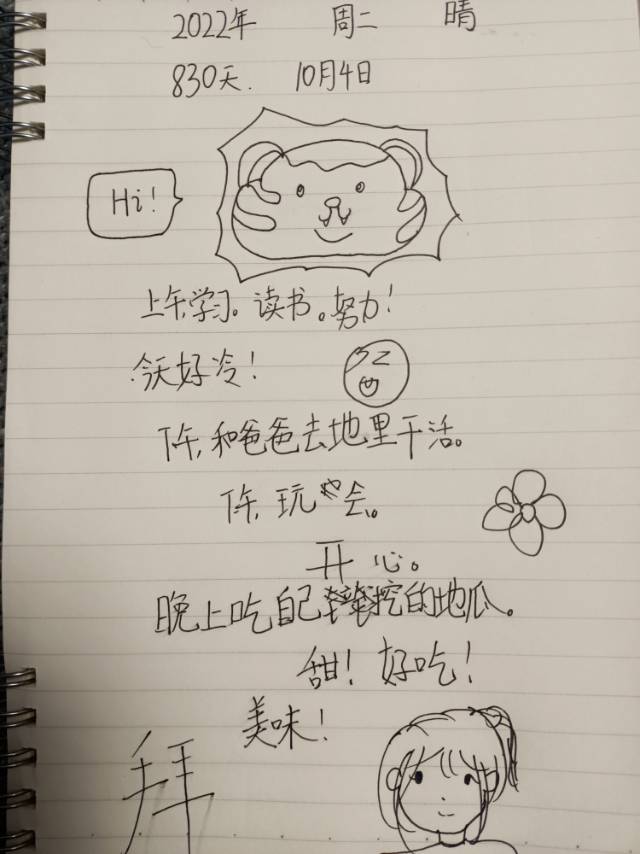 2022年 周二 晴
830天. 10月4日
Hi!
上午,学习。读书。努力!
今天好冷!
下午,和爸爸去地里干活。
下午,玩会。
开心。
晚上吃自己挖的地瓜。
甜! 好吃!
美味!
拜